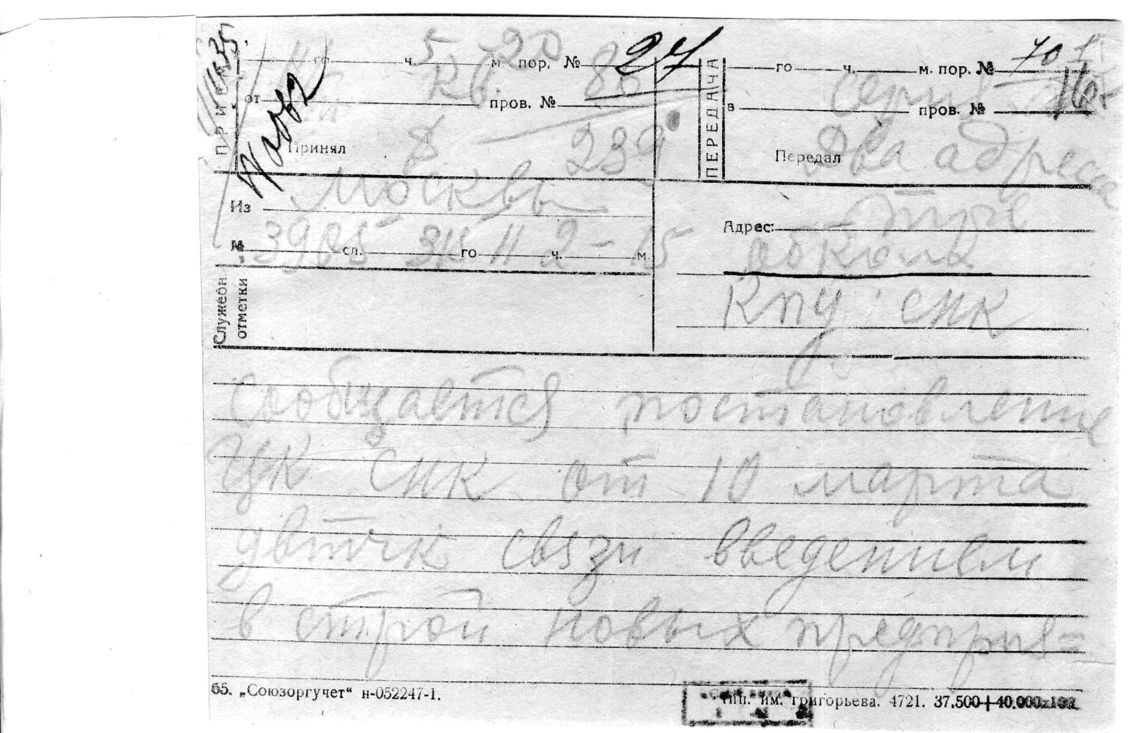 ПРИЕМ
го ч. 5 м 20 пор. № 27
от Кв. 86 пров. №
Принял 239
Из Москвы
№ 3965 сл. 315 го 11 ч. 2-15 м.
Служебн. отметки
ПЕРЕДАЧА
го ч. м. пор. № 70
в Серия пров. №
Передал Два адреса
Адрес:
обкома
КПУ СНК
сообщается постановление
ЦК СНК от 10 марта
двтчк связи введением
в строй новых предприя=
65. „Союзоргучет“ н-052247-1.
тип. им. григорьева. 4721. 37.500+40.000х100